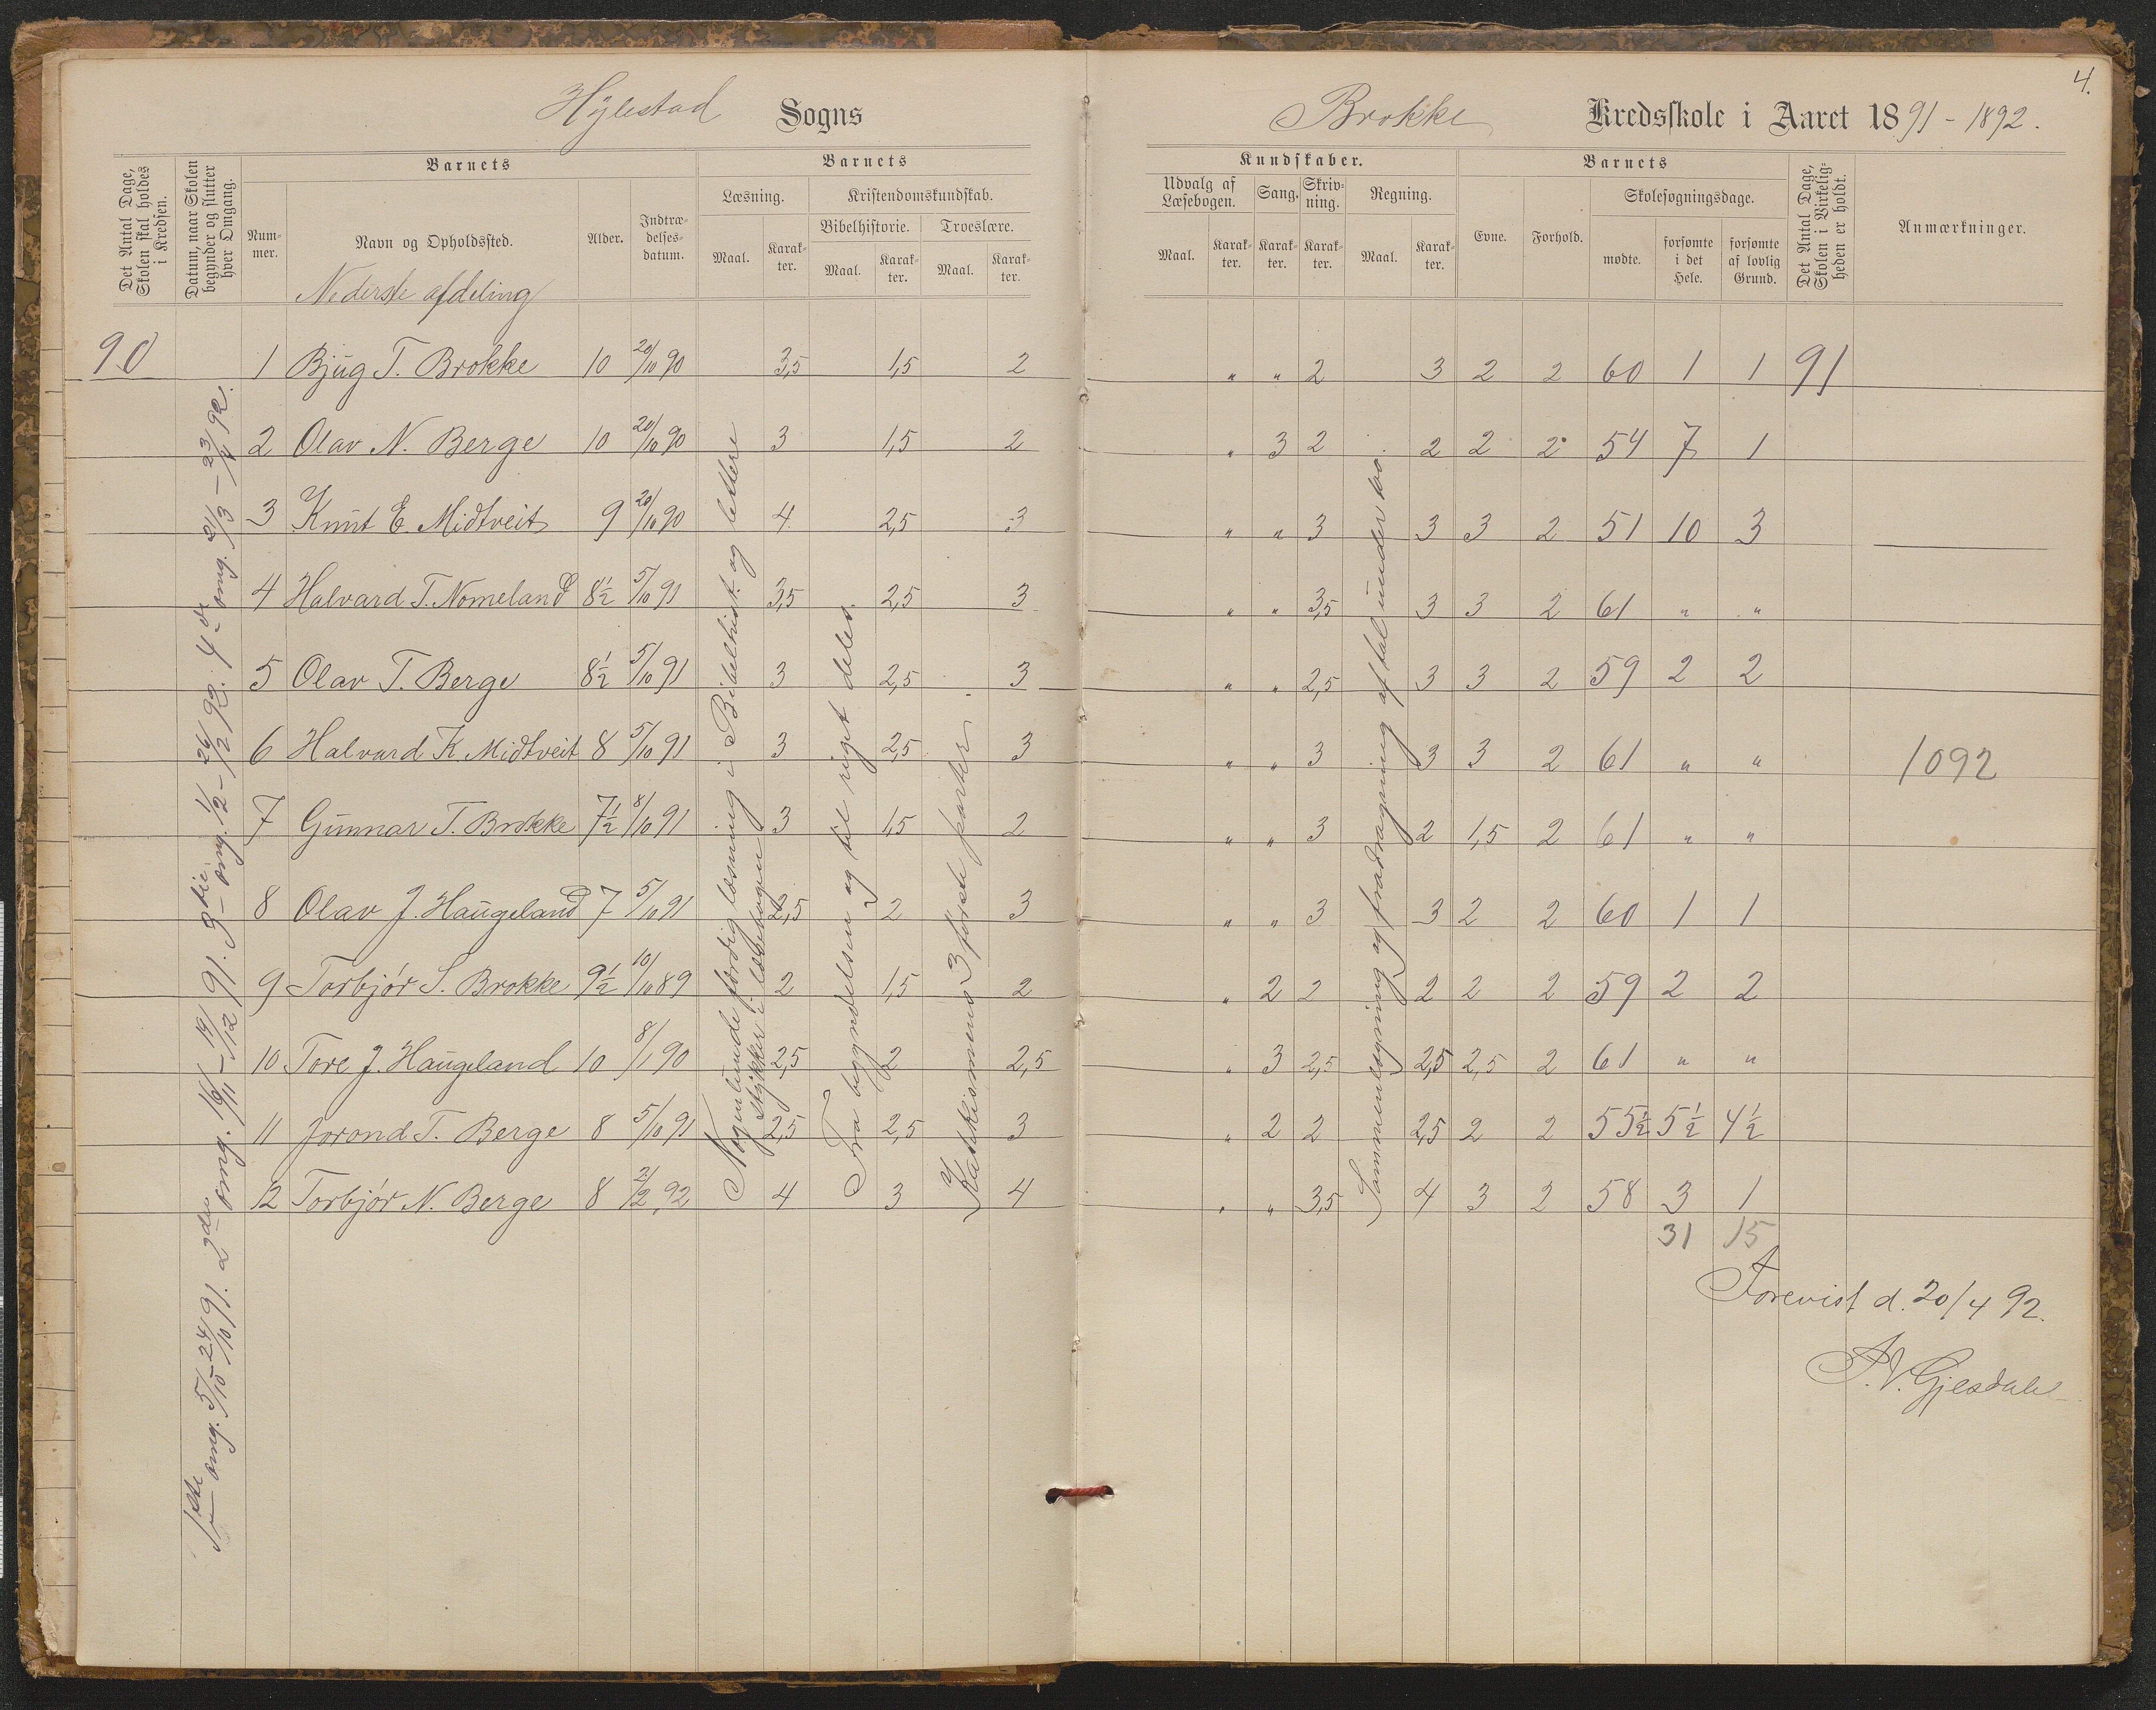 4.
Hylestad Sogns Brokke Kredsskole i Aaret 1891-1892.
Det Antal Dage, Skolen skal holdes i Kredsen.
Datum, naar Skolen begynder og slutter hver Omgang.
Barnets
Nummer.
Navn og Opholdssted.
Alder.
Indtrædelsesdatum.
Barnets
Læsning.
Maal.
Karakter.
Kristendomskundskab.
Bibelhistorie.
Maal.
Karakter.
Troeslære.
Maal.
Karakter.
Kundskaber.
Udvalg af Læsebogen.
Maal.
Karakter.
Sang.
Karakter.
Skrivning.
Karakter.
Regning.
Maal.
Karakter.
Barnets
Evne.
Forhold.
Skolesøgningsdage.
mødte.
forsømte i det Hele.
forsømte af lovlig Grund.
Det Antal Dage, Skolen i Virkeligheden er holdt.
Anmærkninger.
Nederste afdeling
90 1 Bjug T. Brokke 10 20/10 90 3,5 1,5 2 " " 2 3 2 2 60 1 1 91
2 Olav N. Berge 10 20/10 90 3 1,5 2 " 3 2 2 2 2 54 7 1
3 Knut E. Midtveit 9 20/10 90 4 2,5 3 " " 3 3 3 2 51 10 3
4 Halvard T. Nomeland 8½ 5/10 91 3,5 2,5 3 " " 3,5 3 3 2 61 " "
5 Olav T. Berge 8½ 5/10 91 3 2,5 3 " " 2,5 3 3 2 59 2 2
6 Halvard K. Midtveit 8 5/10 91 3 2,5 3 " " 3 3 3 2 61 " " 1092
7 Gunnar T. Brokke 7½ 8/10 91 3 1,5 2 " " 3 2 1,5 2 61 " "
8 Olav J. Haugeland 7 5/10 91 2,5 2 3 " " 3 3 2 2 60 1 1
9 Torbjør S. Brokke 9½ 10/10 89 2 1,5 2 " 2 2 2 2 2 59 2 2
10 Tore J. Haugeland 10 8/1 90 2,5 2 2,5 " 3 2,5 2,5 2,5 2 61 " "
11 Jorond T. Berge 8 5/10 91 2,5 2,5 3 " 2 2 2,5 2 2 55½ 5½ 4½
12 Torbjør N. Berge 8 2/2 92 4 3 4 " " 3,5 4 3 2 58 3 1
31 15
1ste omg. 5/10-24/10 91. 2den omg. 16/11-19/12 91. 3die omg. 1/2-26/2 92. 4de omg. 21/3-23/4 92.
Nogenlunde færdig læsning i Bibelhist. og lettere
stykker i læsebogen
Fra begyndelsen og til riget deles.
Katekismens 3 første parter.
Sammenlægning og fradragning af tal under 100.
Forevist d. 20/4 92.
P.V. Gjesdale